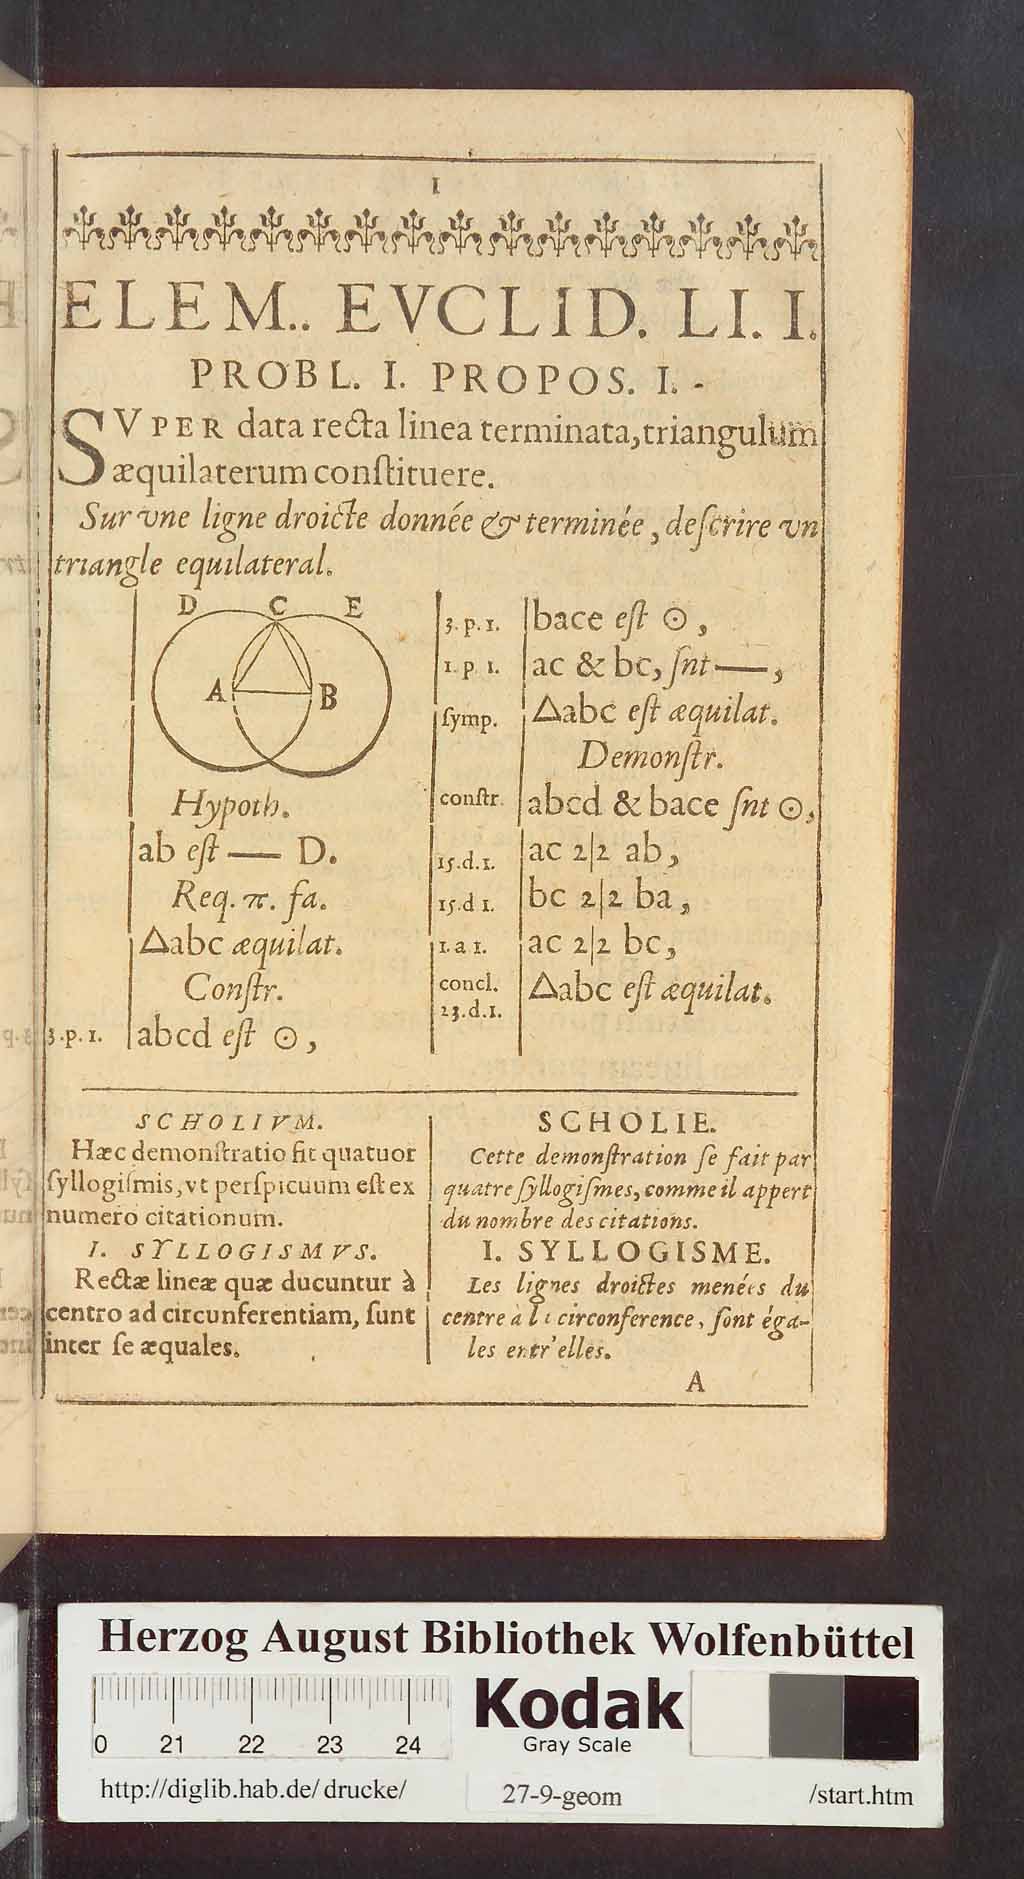 I
ELEM.. EVCLID. LI. I.
PROBL. I. PROPOS. I. -
SVPER data recta linea terminata, triangulum
æquilaterum conſtituere.
Sur vne ligne droicte donnée & terminée, deſcrire vn
triangle equilateral.
D C E
A B
Hypoth.
ab eſt — D.
Req. π. fa.
△abc æquilat.
Conſtr.
3.p.1. abcd eſt ⊙,
3.p.1. bace eſt ⊙,
1.p 1. ac & bc, ſnt —,
ſymp. △abc eſt æquilat.
Demonſtr.
conſtr. abcd & bace ſnt ⊙,
15.d.1. ac 2|2 ab,
15.d 1. bc 2|2 ba,
1.a 1. ac 2|2 bc,
concl. △abc eſt æquilat.
23.d.1.
SCHOLIVM.
Hæc demonſtratio fit quatuor
ſyllogiſmis, vt perſpicuum eſt ex
numero citationum.
I. SYLLOGISMVS.
Rectæ lineæ quæ ducuntur à
centro ad circunferentiam, ſunt
inter ſe æquales.
SCHOLIE.
Cette demonſtration ſe fait par
quatre ſyllogiſmes, comme il appert
du nombre des citations.
I. SYLLOGISME.
Les lignes droictes menées du
centre à la circonference, ſont éga-
les entr'elles.
A
Herzog August Bibliothek Wolfenbüttel
0 21 22 23 24
Kodak
Gray Scale
http://diglib.hab.de/drucke/ 27-9-geom /start.htm